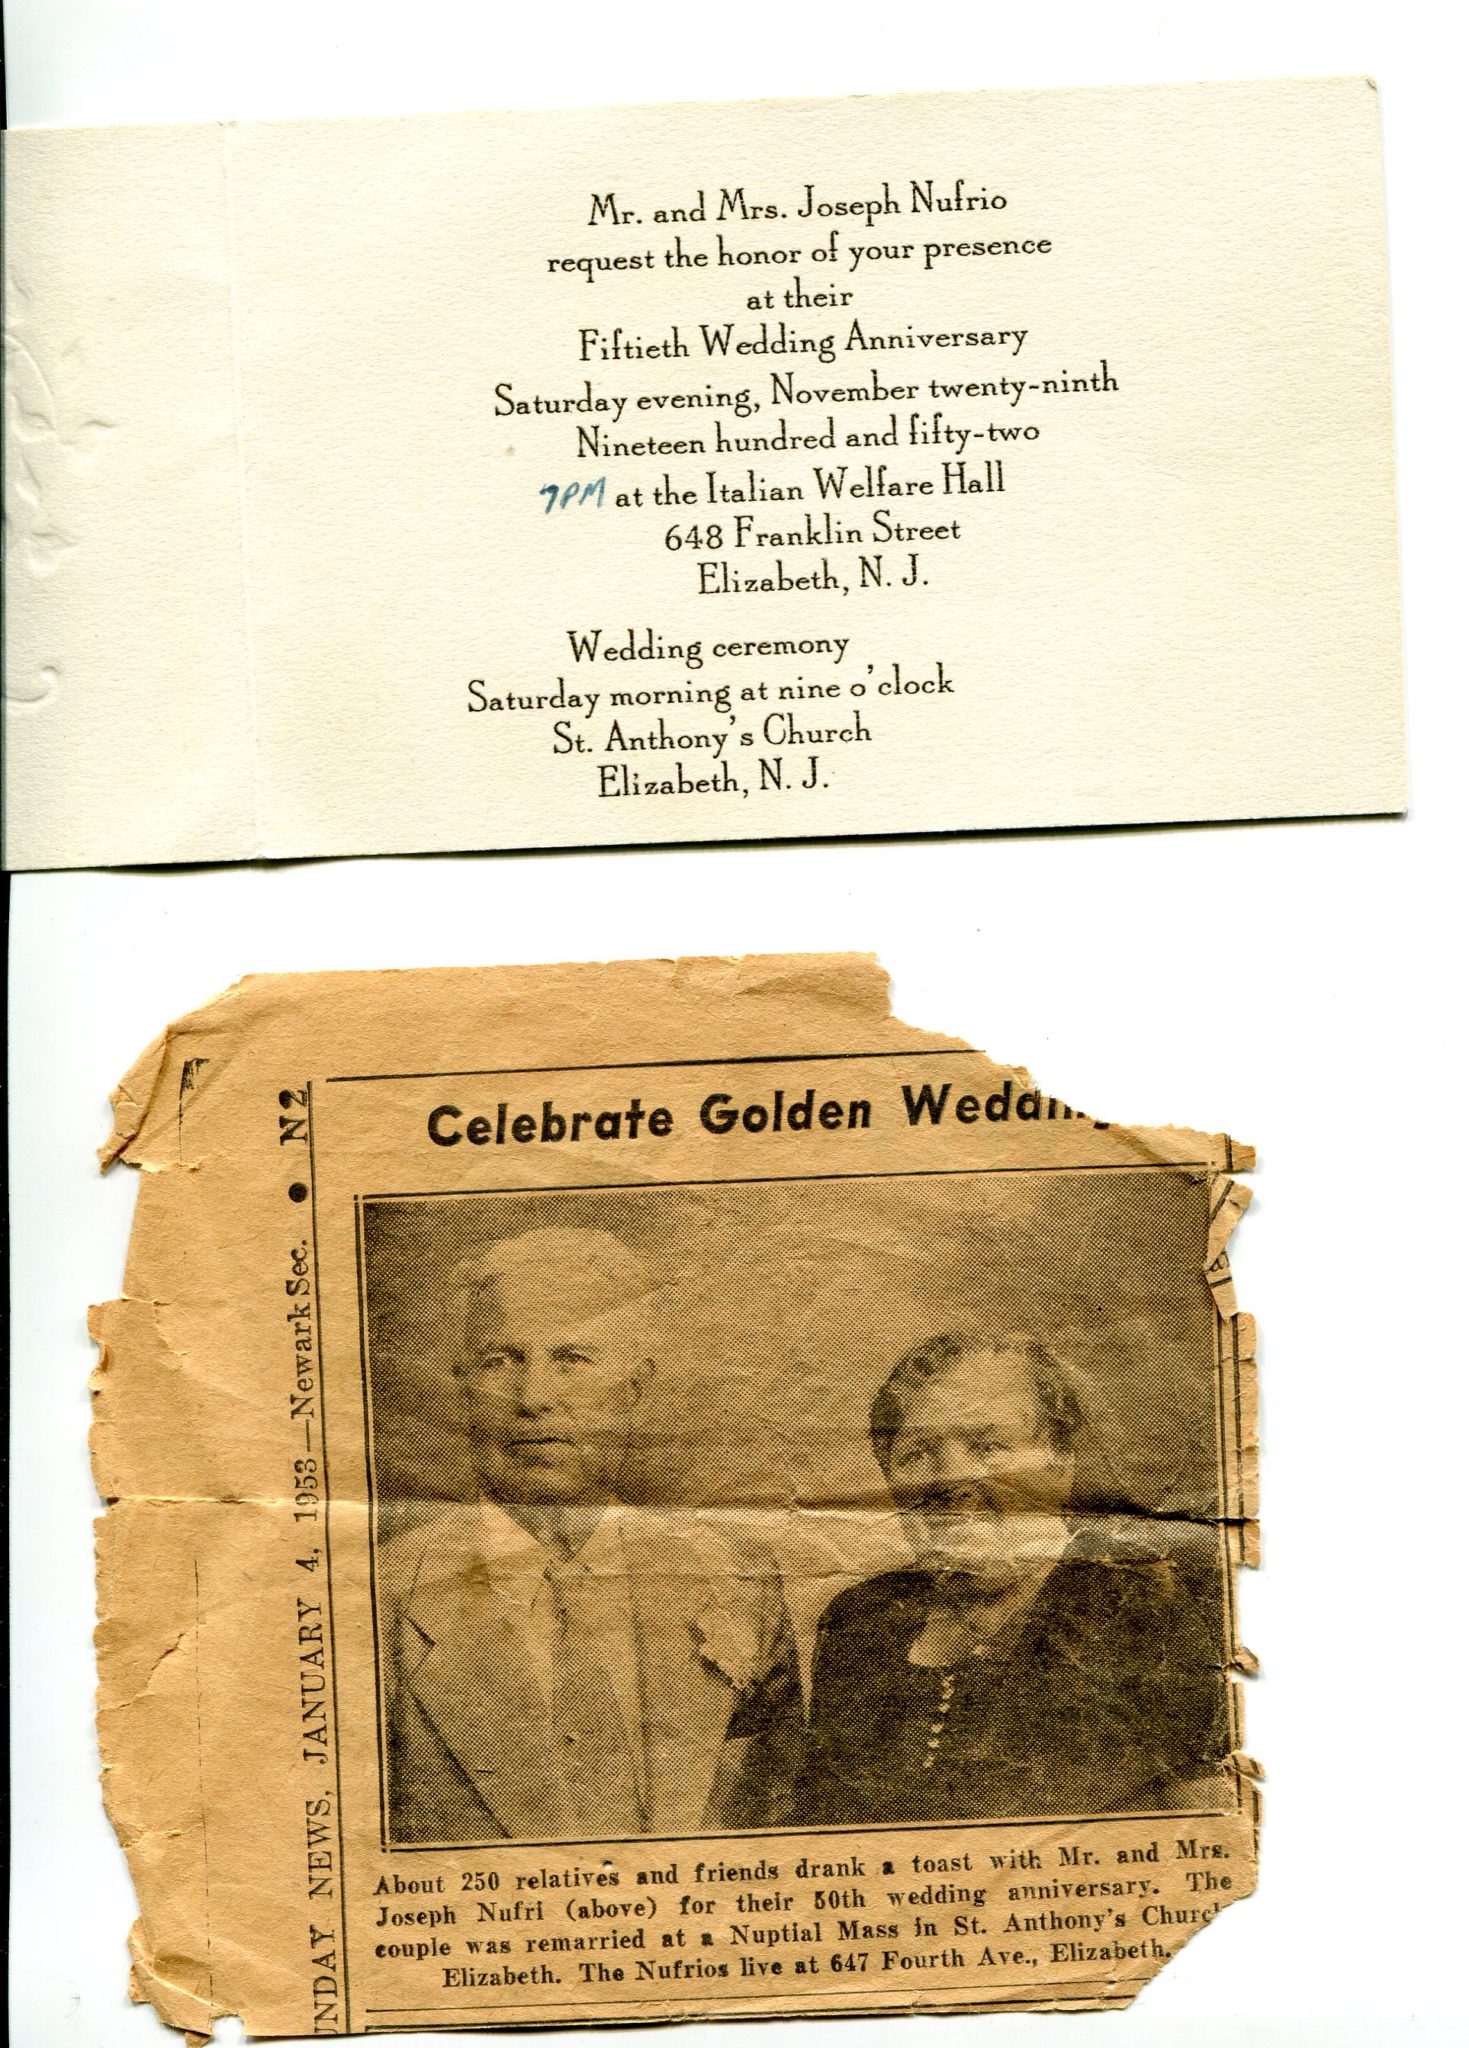 Mr. and Mrs. Joseph Nufrio
request the honor of your presence
at their
Fiftieth Wedding Anniversary
Saturday evening, November twenty-ninth
Nineteen hundred and fifty-two
7PM at the Italian Welfare Hall
648 Franklin Street
Elizabeth, N. J.
Wedding ceremony
Saturday morning at nine o'clock
St. Anthony's Church
Elizabeth, N. J.
UNDAY NEWS, JANUARY 4, 1953—Newark Sec. • N2
Celebrate Golden Wedding
About 250 relatives and friends drank a toast with Mr. and Mrs.
Joseph Nufri (above) for their 50th wedding anniversary. The
couple was remarried at a Nuptial Mass in St. Anthony's Church
Elizabeth. The Nufrios live at 647 Fourth Ave., Elizabeth.